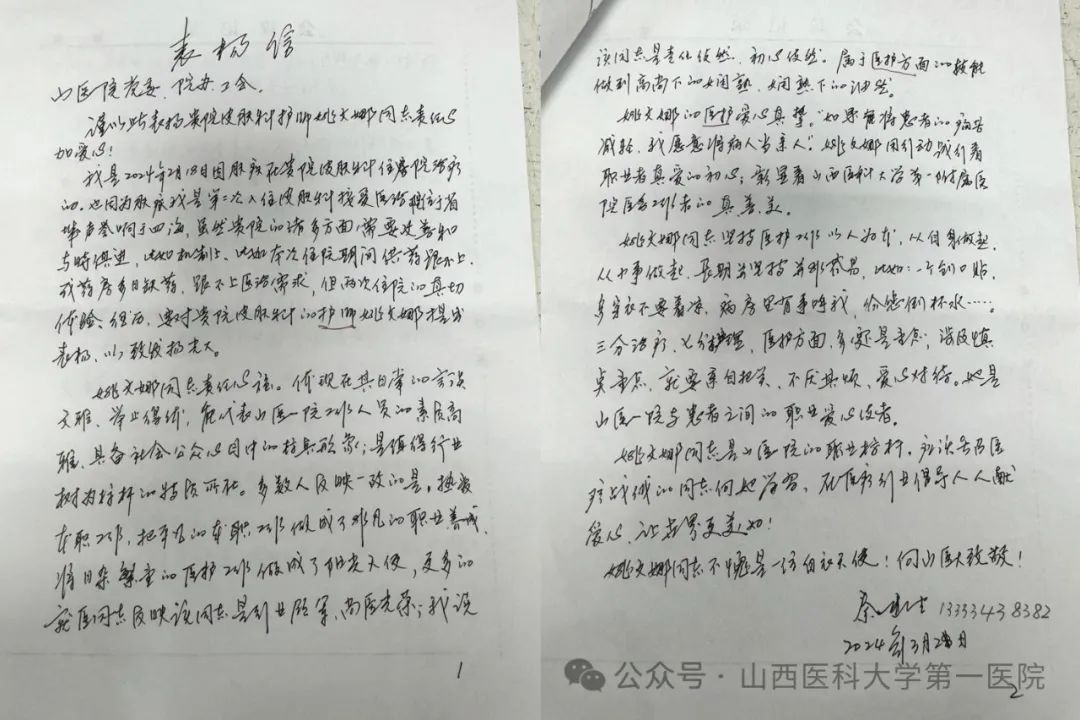 表扬信
山医院党委、院办、工会、
谨以此表扬贵院皮肤科护师姚文娜同志责任心
加爱心!
我是2024年2月18日因肤疾在贵院皮肤科住院治疗
的。也因为肤疾我是第二次入住皮肤科接受医治
声誉响于四海,虽然贵院的诸多方面需要改善和
与时俱进,比如机制上,比如本次住院期间供药跟不上,
或药房多日缺药,跟不上医治需求,但两次住院的真切
体验、经历,要对贵院皮肤科的护师姚文娜提出
表扬,以致发扬光大。
姚文娜同志责任心强。体现在其日常的言谈
文雅、举止得体,能代表山医一院工作人员的素质高
雅、具备社会公众心目中的形象;是值得行业
树为标杆的特质所在。多数人反映一致的是,热爱
本职工作,把平凡的本职工作做成了非凡的职业
将日杂繁重的医护工作做成了阳光天使,更多的
就医同志反映该同志是行业的军,尚医光荣;我说
1
该同志是老化依然、初心依然。属于医护方面的技能
做到高尚下的娴熟、娴熟下的
姚文娜的医护爱心真挚。“如果有将患者的病苦
减轻,我愿意将病人当亲人”。姚文娜用行动践行着
职业者真爱的初心;彰显着山西医科大学第一附属医
院医务工作者的真善美。
姚文娜同志坚持医护工作以人为本,从自身做起,
从小事做起,长期坚持,比如:一个创口贴,
多穿衣不要着凉,病房里有事呼我,给您倒杯水……。
三分治疗、七分护理,医护方面,多处是重点;
贵重点,就要亲自把关,不厌其烦,爱心对待。她是
山医一院与患者之间的职业爱心使者。
姚文娜同志是山医院的职业标杆,应该号召医
疗战线的同志向她学习,在医疗行业倡导人人献
爱心,让世界更美如!
姚文娜同志不愧是一位白衣天使!向山医大致敬!
秦 13333438382
2024年3月2日
2
公众号·山西医科大学第一医院